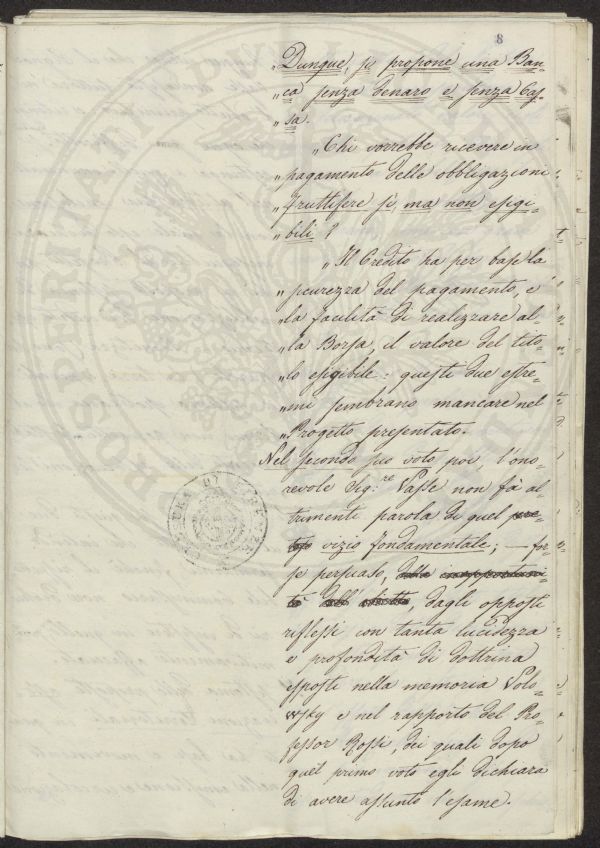 8
„Dunque, si propone una Ban=
„ca senza denaro e senza Cas=
„sa.
„Chi vorrebbe ricevere in
„pagamento delle obbligazioni
„fruttifere sì, ma non esigi=
„bili?
„Il Credito ha per base la
„sicurezza del pagamento, e
„la facilità di realizzare al=
„la Borsa, il valore del tito=
„lo esigibile: questi due estre=
„mi sembrano mancare nel
„Progetto presentato.
Nel secondo suo voto poi, l'ono=
revole Sig.re Vasse non fà al=
trimenti parola di quel
vizio fondamentale; — for=
se persuaso, dagli opposti
riflessi con tanta lucidezza
e profondità di dottrina
esposti nella memoria Volo=
wsky e nel rapporto del Pro=
fessor Rossi, dei quali dopo
quel primo voto egli dichiara
di avere assunto l'esame.